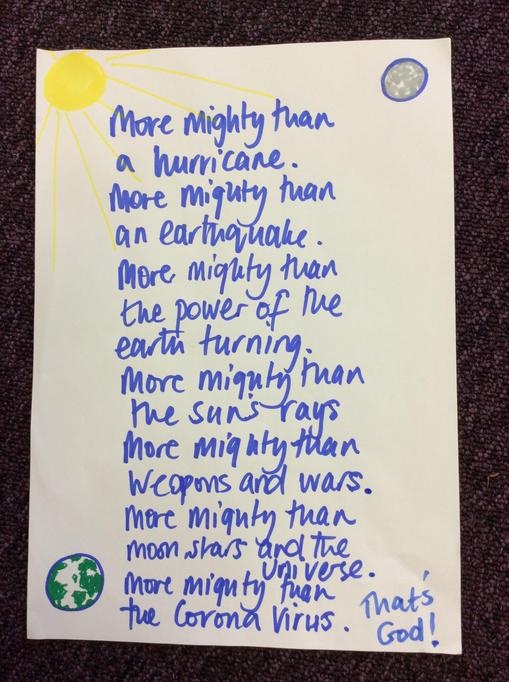 More mighty than
a hurricane.
More mighty than
an earthquake.
More mighty than
the power of the
earth turning.
More mighty than
the sun's rays
More mighty than
Weapons and wars.
More mighty than
moon stars and the
universe.
More mighty than
the Corona Virus.
That's
God!